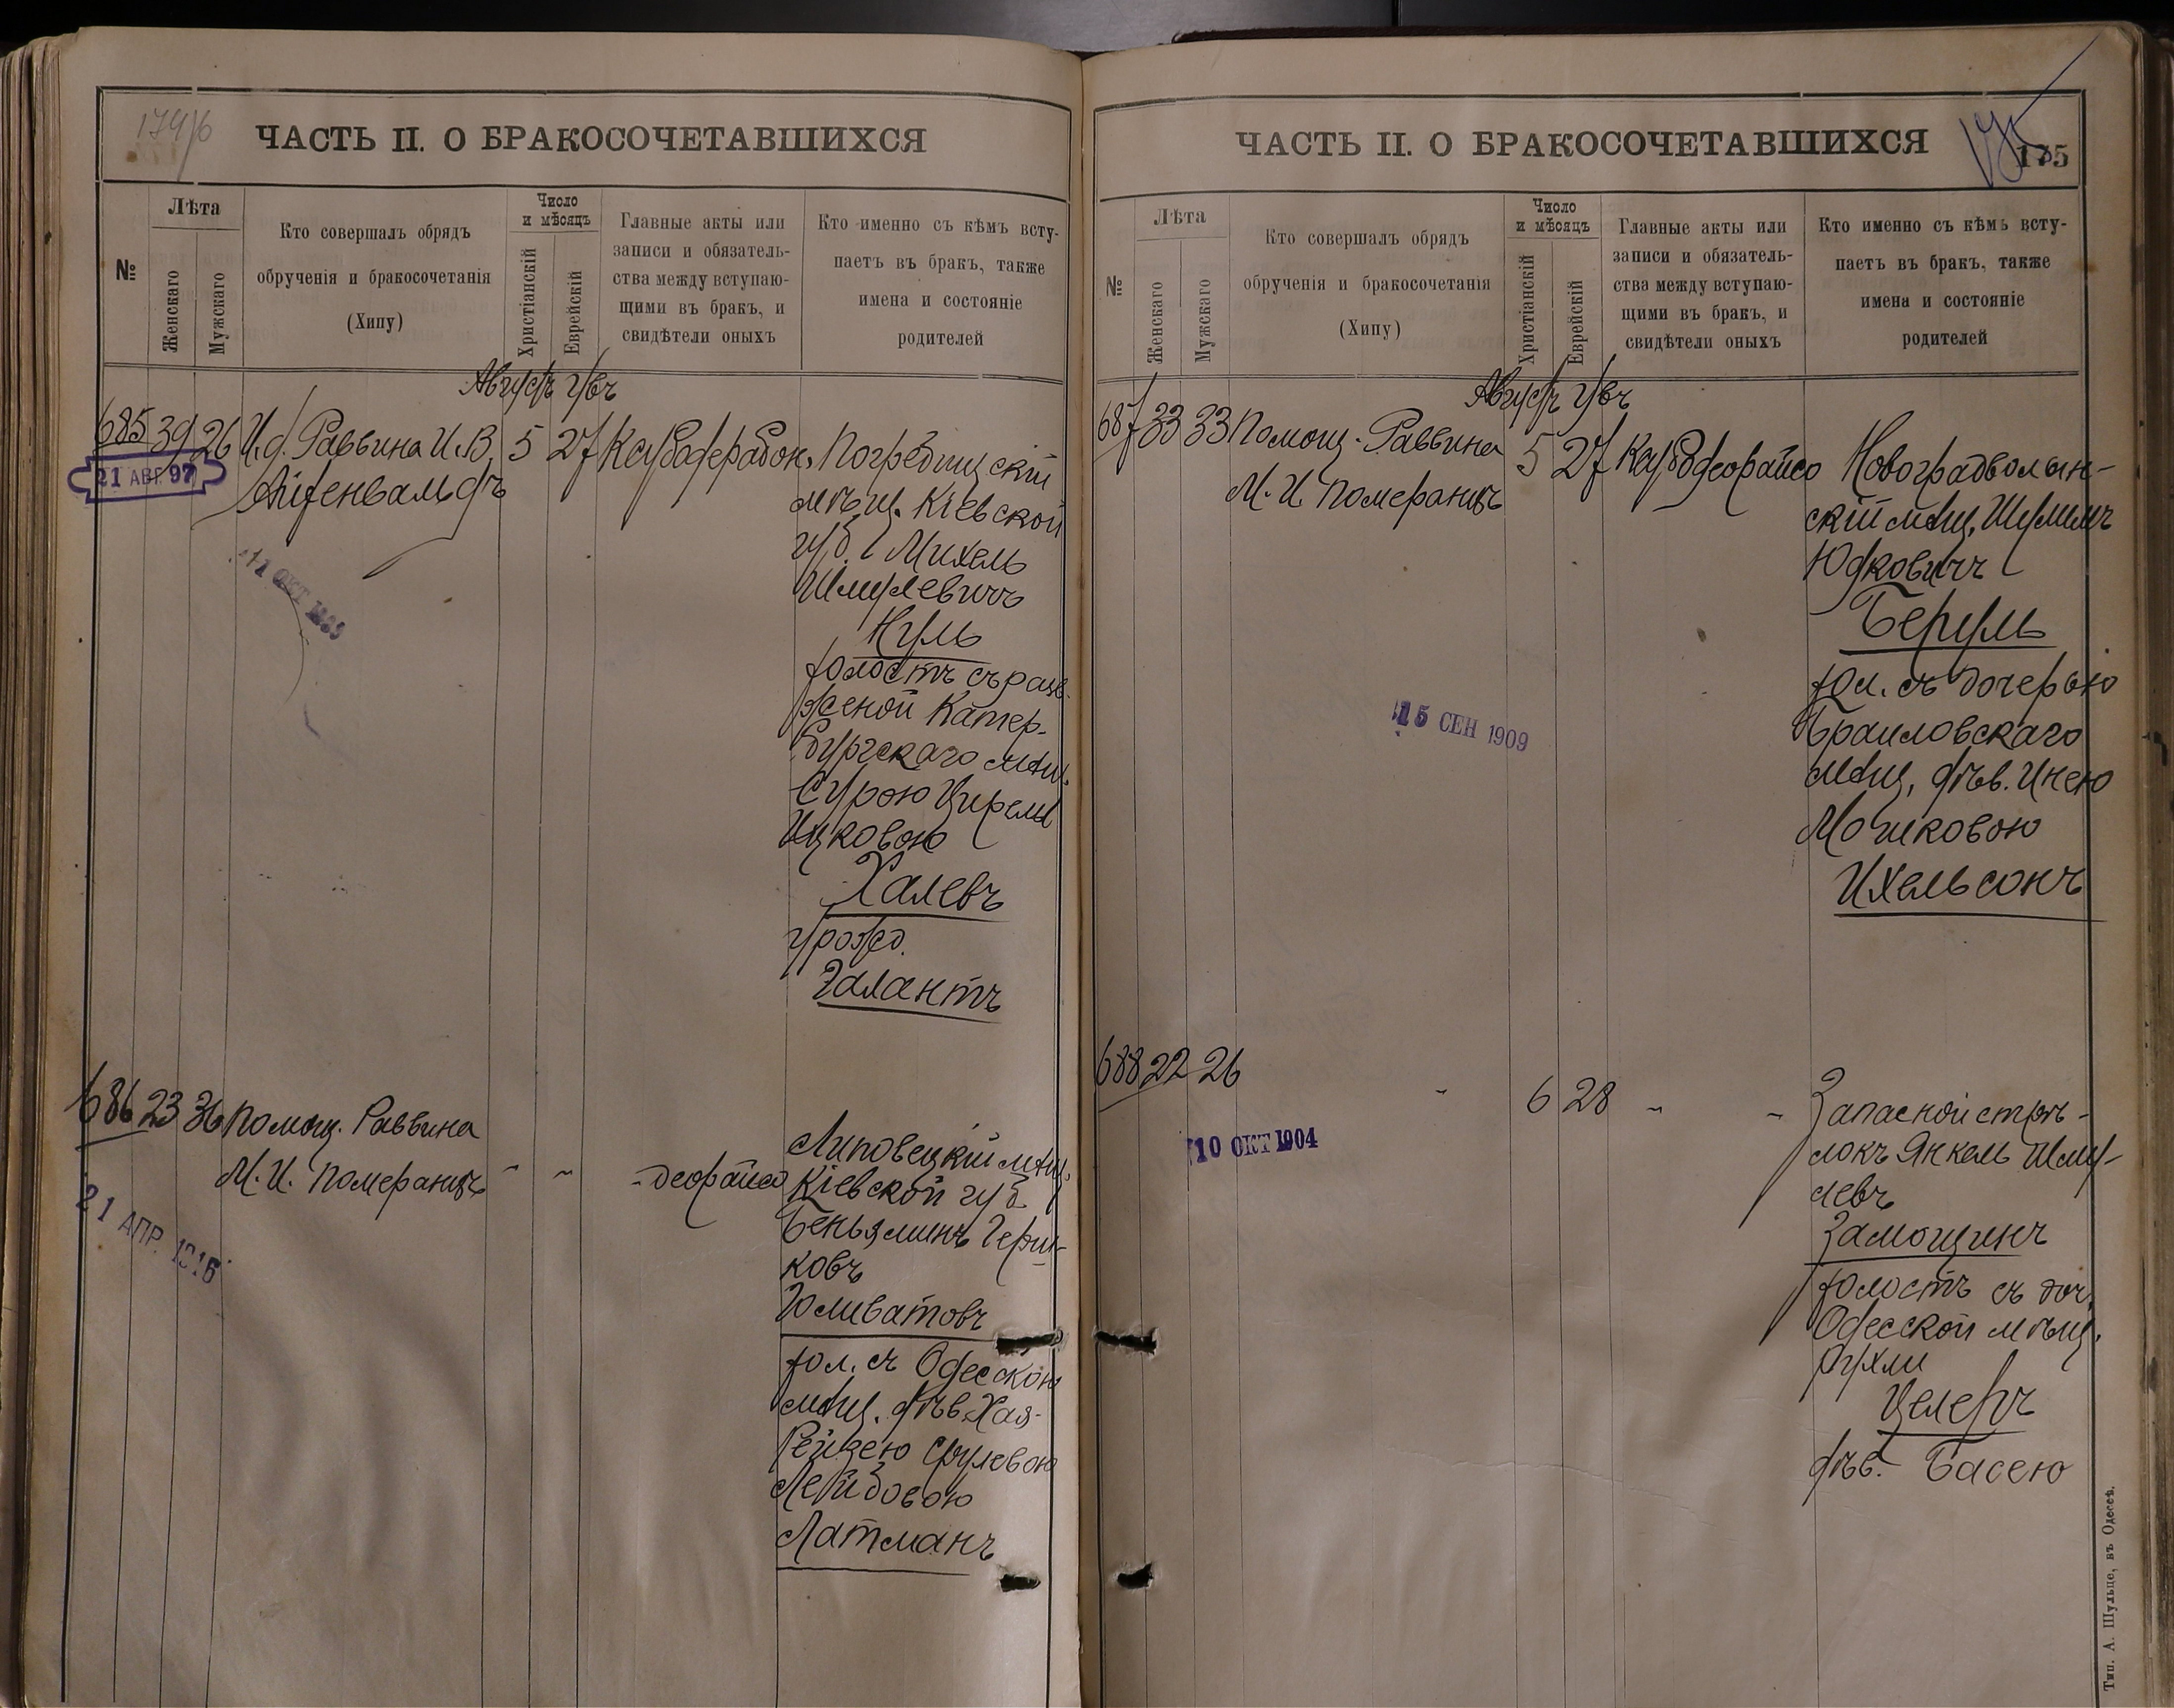 174/6
ЧАСТЬ II. О БРАКОСОЧЕТАВШИХСЯ
№
Лѣта
Женскаго
Мужскаго
Кто совершалъ обрядъ
обрученія и бракосочетанія
(Хипу)
Число
и мѣсяцъ
Христіанскій
Еврейскій
Главные акты или
записи и обязатель-
ства между вступаю-
щими въ бракъ, и
свидѣтели оныхъ
Кто именно съ кѣмъ всту-
паетъ въ бракъ, также
имена и состояніе
родителей
Августъ
685 39 26 И.д. Раввина И.В. 5 27
Айзенвальдъ
21 АВГ. 97
11 ОКТ
Погребищскій
мѣщ. Кіевской
губ. Михель
Шмулевичъ
Нуль
холостъ съ разв.
женой Катер-
бургскаго мѣщ.
Сурою Цирель
Ицковою
Халевъ
урожд.
Галантъ
686 23 36 Помощ. Раввина
М. И. Померанцъ " " -деорайсо
21 АПР. 1916
Липовецкій мѣщ.
Кіевской губ.
Беньяминъ Герш-
ковъ
Голиватовъ
хол. съ Одесскою
мѣщ. дѣв. Хая-
Рейзею Срулевою
Лейбовою
Латманъ
ЧАСТЬ II. О БРАКОСОЧЕТАВШИХСЯ
175
№
Лѣта
Женскаго
Мужскаго
Кто совершалъ обрядъ
обрученія и бракосочетанія
(Хипу)
Число
и мѣсяцъ
Христіанскій
Еврейскій
Главные акты или
записи и обязатель-
ства между вступаю-
щими въ бракъ, и
свидѣтели оныхъ
Кто именно съ кѣмъ всту-
паетъ въ бракъ, также
имена и состояніе
родителей
Августъ
687 33 33 Помощ. Раввина 5 27
М. И. Померанцъ
15 СЕН 1909
Новоградволын-
скій мѣщ. Шулимъ
Юдковичъ
Берулъ
хол. съ дочерью
Браиловскаго
мѣщ. дѣв. Инею
Мошковою
Ихельсонъ
688 22 26 " 6 28 " "
10 ОКТ 1904
Запасной стрѣ-
локъ Янкель Шму-
левъ
Замощинъ
холостъ съ доч.
Одесской мѣщ.
Рухли
Целеръ
дѣв. Басею
Тип. А. Шульце, въ Одессѣ.